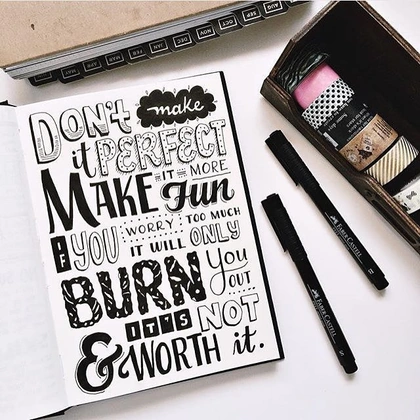 DON'T make
it PERFECT
MAKE IT MORE Fun
IF YOU WORRY TOO MUCH
IT WILL ONLY
BURN You OUT
IT'S NOT
& WORTH it.
AUG
SEP
OCT
NOV
DEC
JAN
FEB
MAR
APR
MAY
FABER-CASTELL
FABER-CASTELL